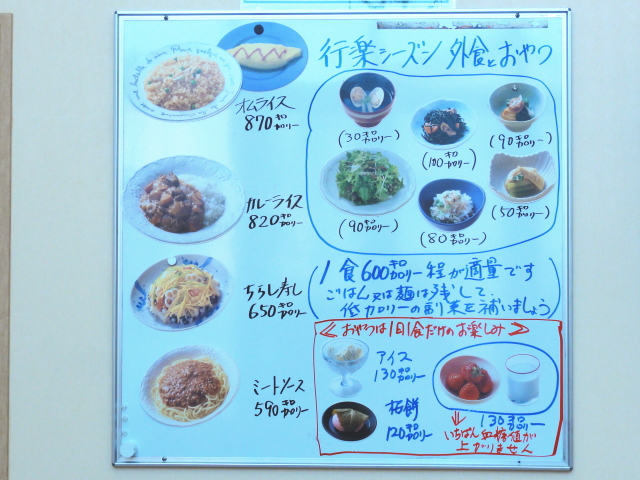 行楽シーズン 外食とおやつ
オムライス
870キロカロリー
カレーライス
820キロカロリー
ちらし寿し
650キロカロリー
ミートソース
590キロカロリー
(30キロカロリー)
(100キロカロリー)
(90キロカロリー)
(90キロカロリー)
(80キロカロリー)
(50キロカロリー)
1食600キロカロリー程が適量です
ごはん又は麺は残して、
低カロリーの副菜を補いましょう
≪おやつは1日1食だけのお楽しみ≫
アイス
130キロカロリー
柏餅
120キロカロリー
130キロカロリー
いちばん血糖値が
上がりません